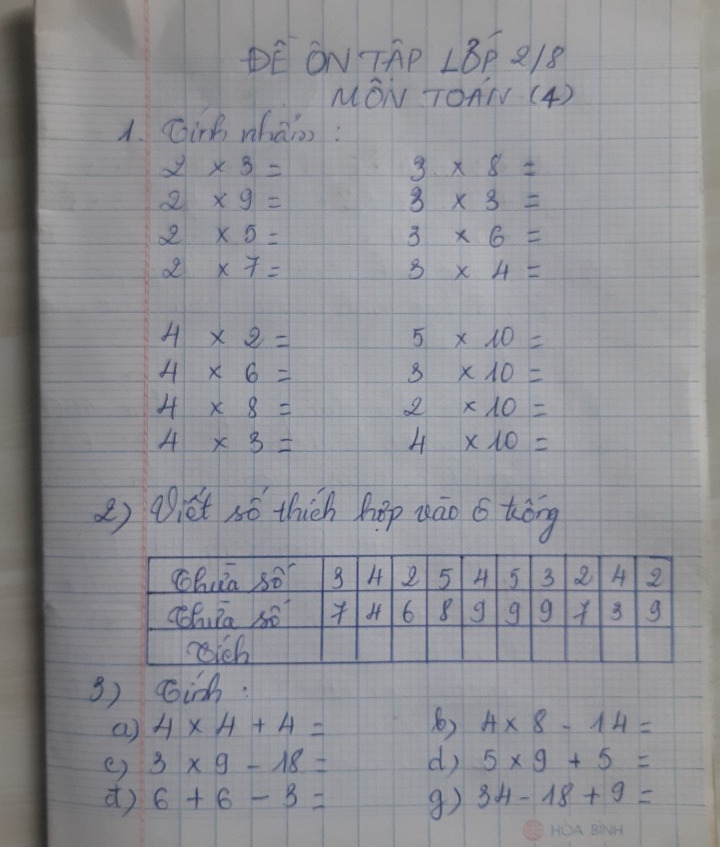 ĐỀ ÔN TẬP LỚP 2/8
MÔN TOÁN (4)
1. Tính nhẩm :
2 x 3 = 3 x 8 =
2 x 9 = 3 x 3 =
2 x 5 = 3 x 6 =
2 x 7 = 3 x 4 =
4 x 2 = 5 x 10 =
4 x 6 = 3 x 10 =
4 x 8 = 2 x 10 =
4 x 3 = 4 x 10 =
2) Viết số thích hợp vào ô trống
Thừa số 3 4 2 5 4 5 3 2 4 2
Thừa số 7 4 6 8 9 9 9 7 3 9
Tích
3) Tính :
a) 4 x 4 + 4 = b) 4 x 8 - 14 =
c) 3 x 9 - 18 = d) 5 x 9 + 5 =
đ) 6 + 6 - 3 = g) 34 - 18 + 9 =
HÒA BÌNH